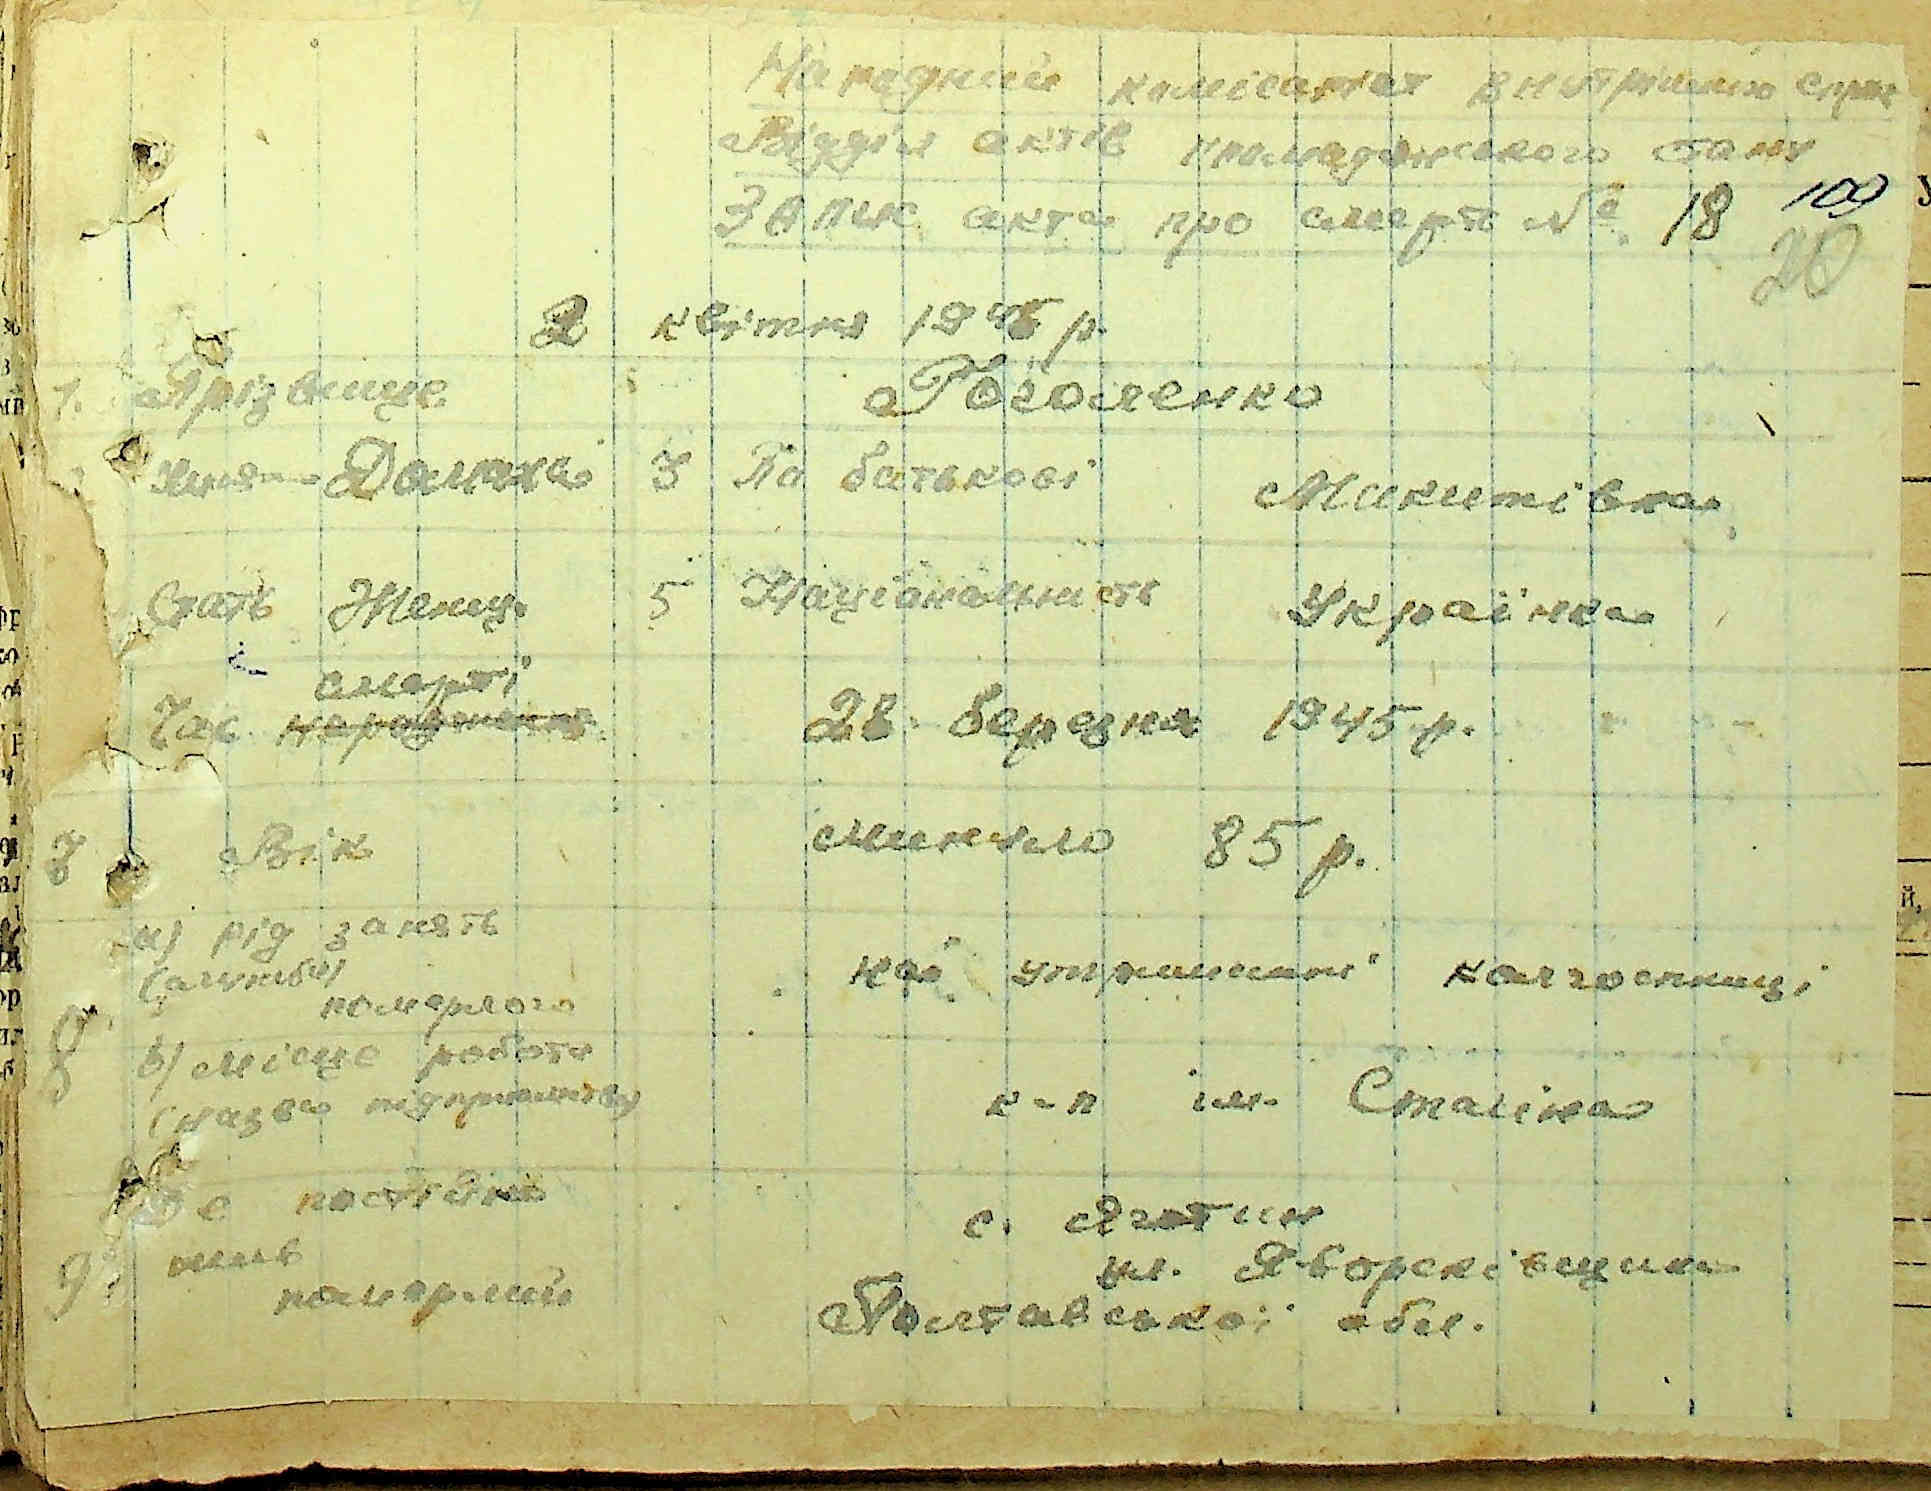 Народний комісаріат внутрішніх справ
Відділ актів громадянського стану
Запис акта про смерть № 18 109
20
2 квітня 1945 р.
1. Прізвище Гоголенко
Имя - Домаха 3 По батькові Микитівна
Стать Женщ. 5 Національність Українка
смерті
Час народження 28 березня 1945 р.
7 Вік минуло 85 р.
а) рід занять на утриманні колгоспниці
(служби)
померлого
8 б) місце роботи
(назва підприємства) к-п ім. Сталіна
Де постійно с. Яготин
9. жив ул. Яворсківщина
померлий Полтавської обл.